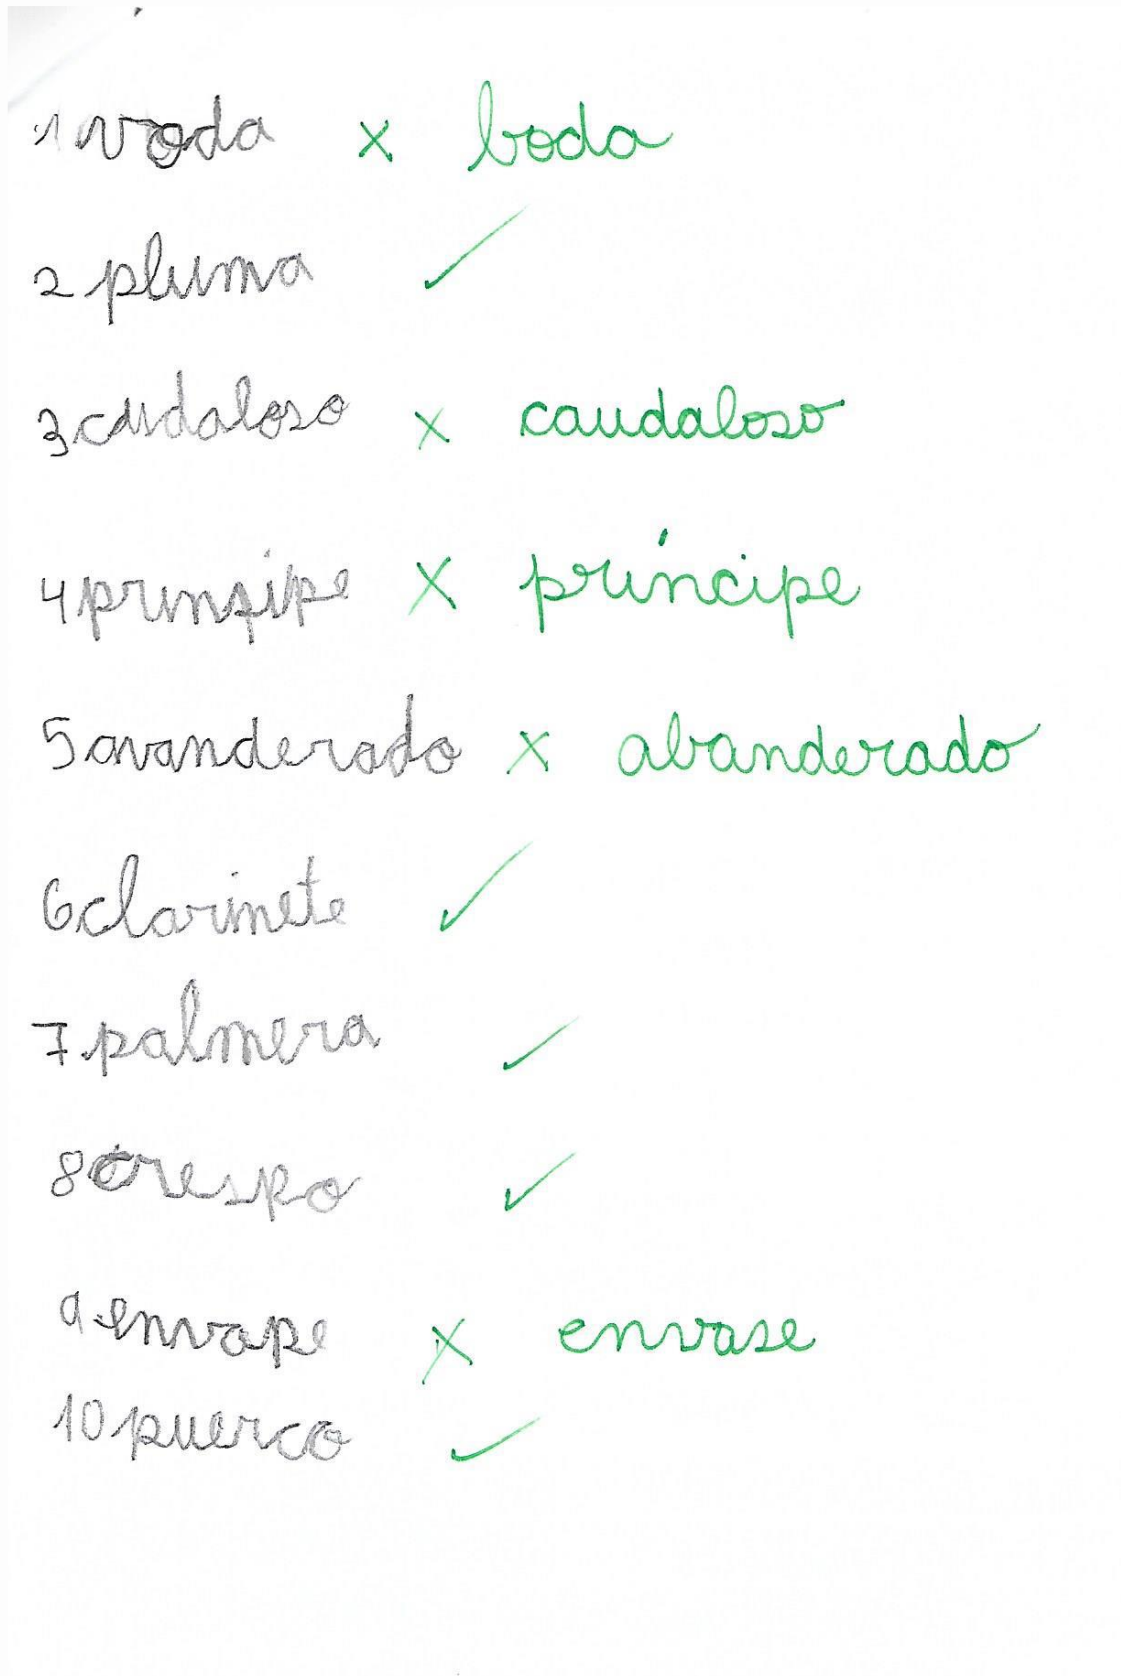 1 voda x boda
2 pluma ✓
3 caudaloso x caudaloso
4 prinsipe x príncipe
5 avanderado x abanderado
6 clarinete ✓
7. palmera ✓
8 crespo ✓
9. envape x envase
10 puerco ✓